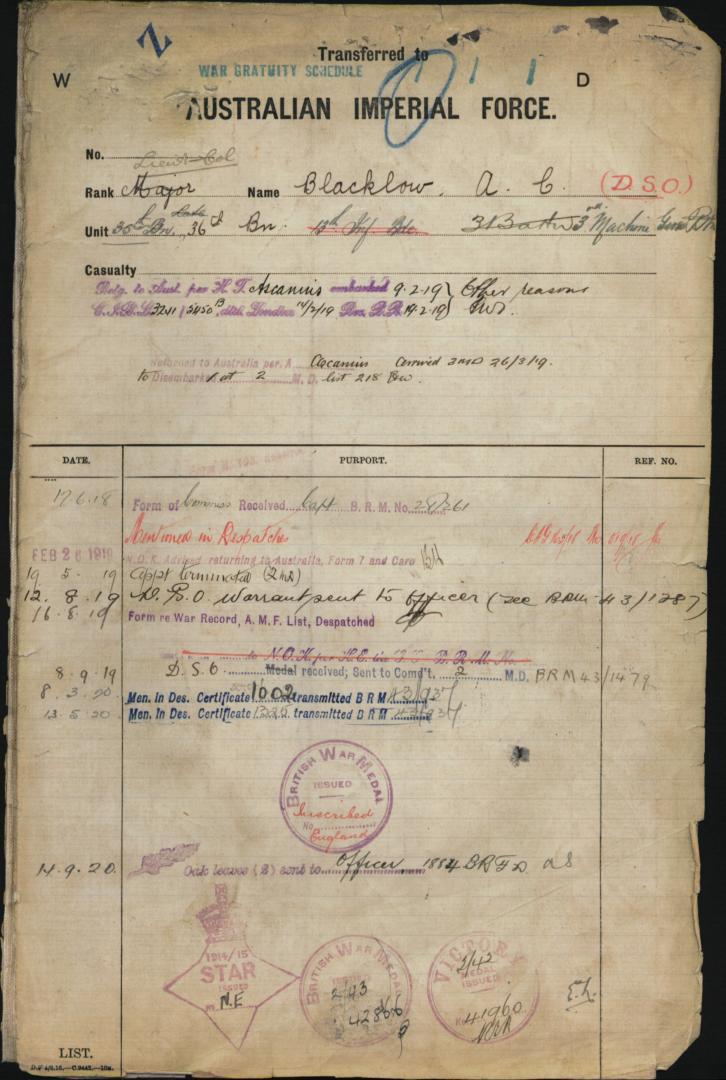 Z
Transferred to
WAR GRATUITY SCHEDULE
W
D
AUSTRALIAN IMPERIAL FORCE.
No.
Lieut-Col
Rank Major Name Blacklow. A. C. (D.S.O.)
Unit 35th Bn. 36th Bn. 3rd Machine Gun Bn
Casualty
Retg. to Aust. per H.T. Ascanius embarked 9.2.19 Other reasons
Returned to Australia per. A Ascanius arrived 2MD 26/3/19.
to Disembark at 2 M.D. list 218
DATE.
PURPORT.
REF. NO.
17.6.18 Form of Received Capt B.R.M. No. 28/261
Mentioned in Despatches
FEB 26 1919 N.O.K. Advised returning to Australia, Form 7 and Card
19 5. 19 Appt terminated (2MD)
12. 8. 19 D.S.O. Warrant sent to Officer (see BRM 43/1287)
16.8.19 Form re War Record, A.M.F. List, Despatched
to N.O.K. per
8.9.19 D.S.O. Medal received; Sent to Comd't. 2 M.D. BRM 43/1479
8.3.20 Men. In Des. Certificate 1002 transmitted B R M 43/937
13.5.20 Men. In Des. Certificate transmitted B R M 43/937
BRITISH WAR MEDAL
ISSUED
Inscribed
No.
England
14.9.20. Oak leaves (2) sent to Officer 1884 BRFD
1914/15
STAR
ISSUED
N.E
BRITISH WAR MEDAL
ISSUED
2/43
42866
VICTORY
2/42
MEDAL
ISSUED
41960
LIST.